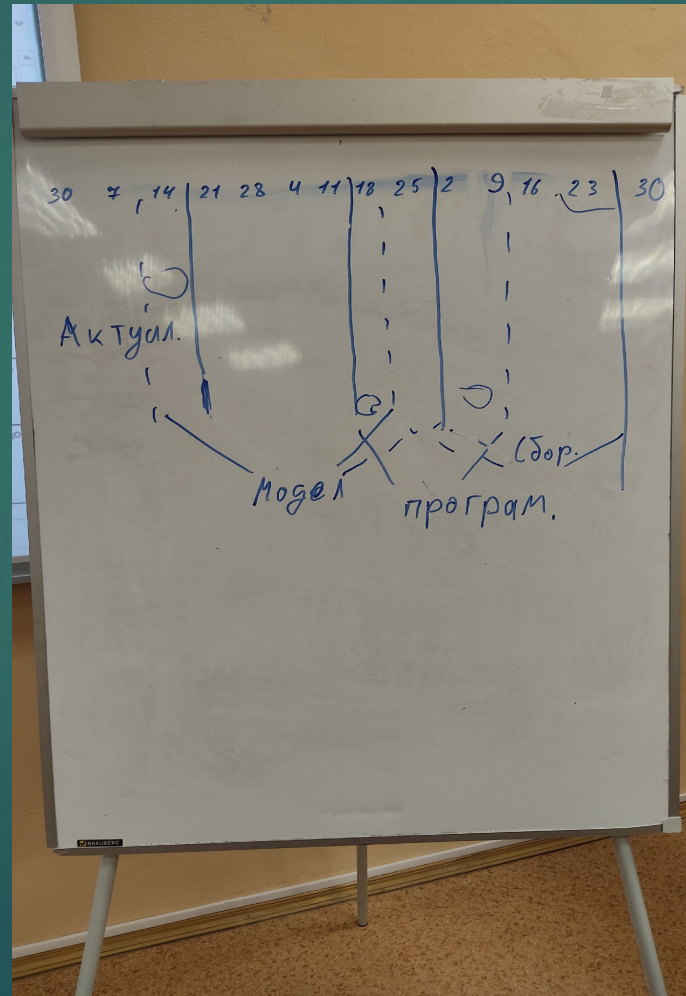 30 7 14 21 28 4 11 18 25 2 9 16 23 30
Актуал.
Сбор.
Модел
програм.
BRAUBERG